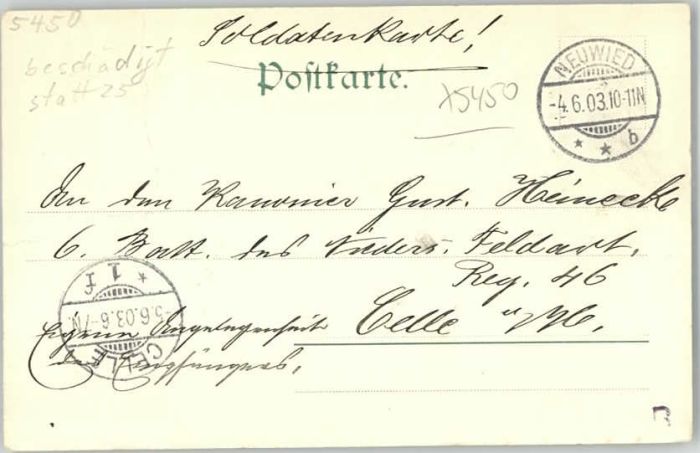 5450
beschädigt
statt 25
Soldatenkarte!
Postkarte.
X5450
NEUWIED
-4.6.03.10-11N
* * b
An den Kanonier Gust. Heinecke
6. Batt. des Nieders. Feldart.
Reg. 46
Celle
Eigene Angelegenheit
des Empfängers.
CELLE
5.6.03.6-7N.
* 1 f